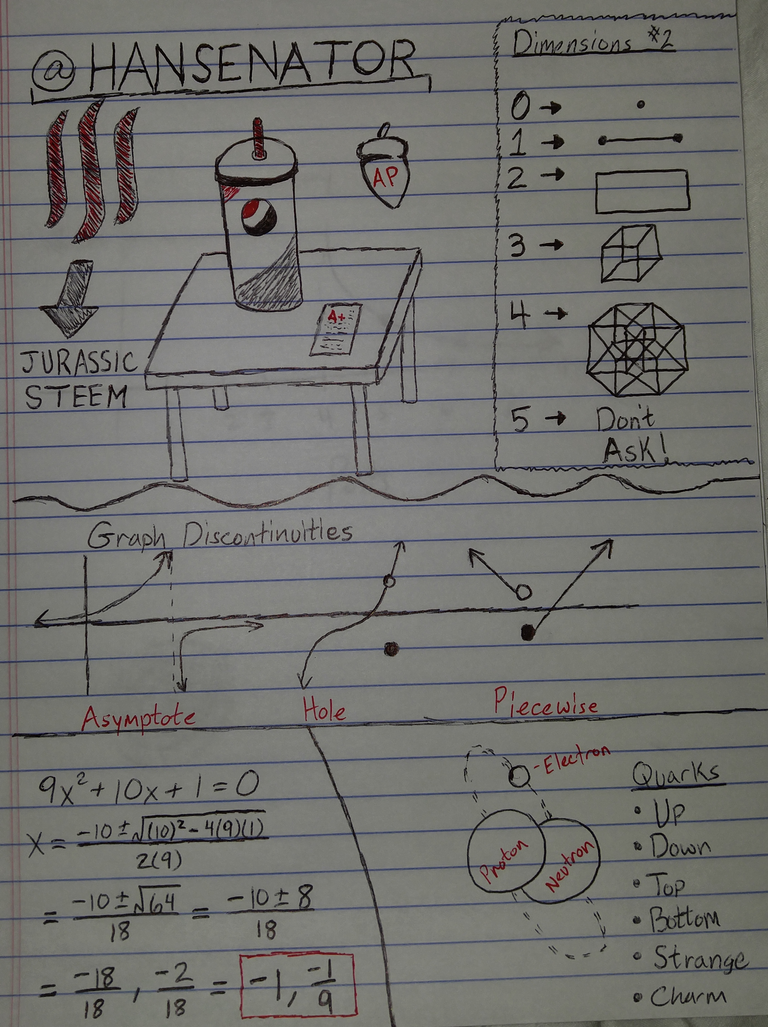 @HANSENATOR
AP
A+
JURASSIC
STEEM
Dimensions #2
0 →
1 →
2 →
3 →
4 →
5 → Don't
Ask!
Graph Discontinuities
Asymptote
Hole
Piecewise
9x² + 10x + 1 = 0
x = (-10 ± √((10)² - 4(9)(1))) / 2(9)
= (-10 ± √64) / 18 = (-10 ± 8) / 18
= -18/18, -2/18 = -1, -1/9
-Electron
Proton
Neutron
Quarks
• Up
• Down
• Top
• Bottom
• Strange
• Charm